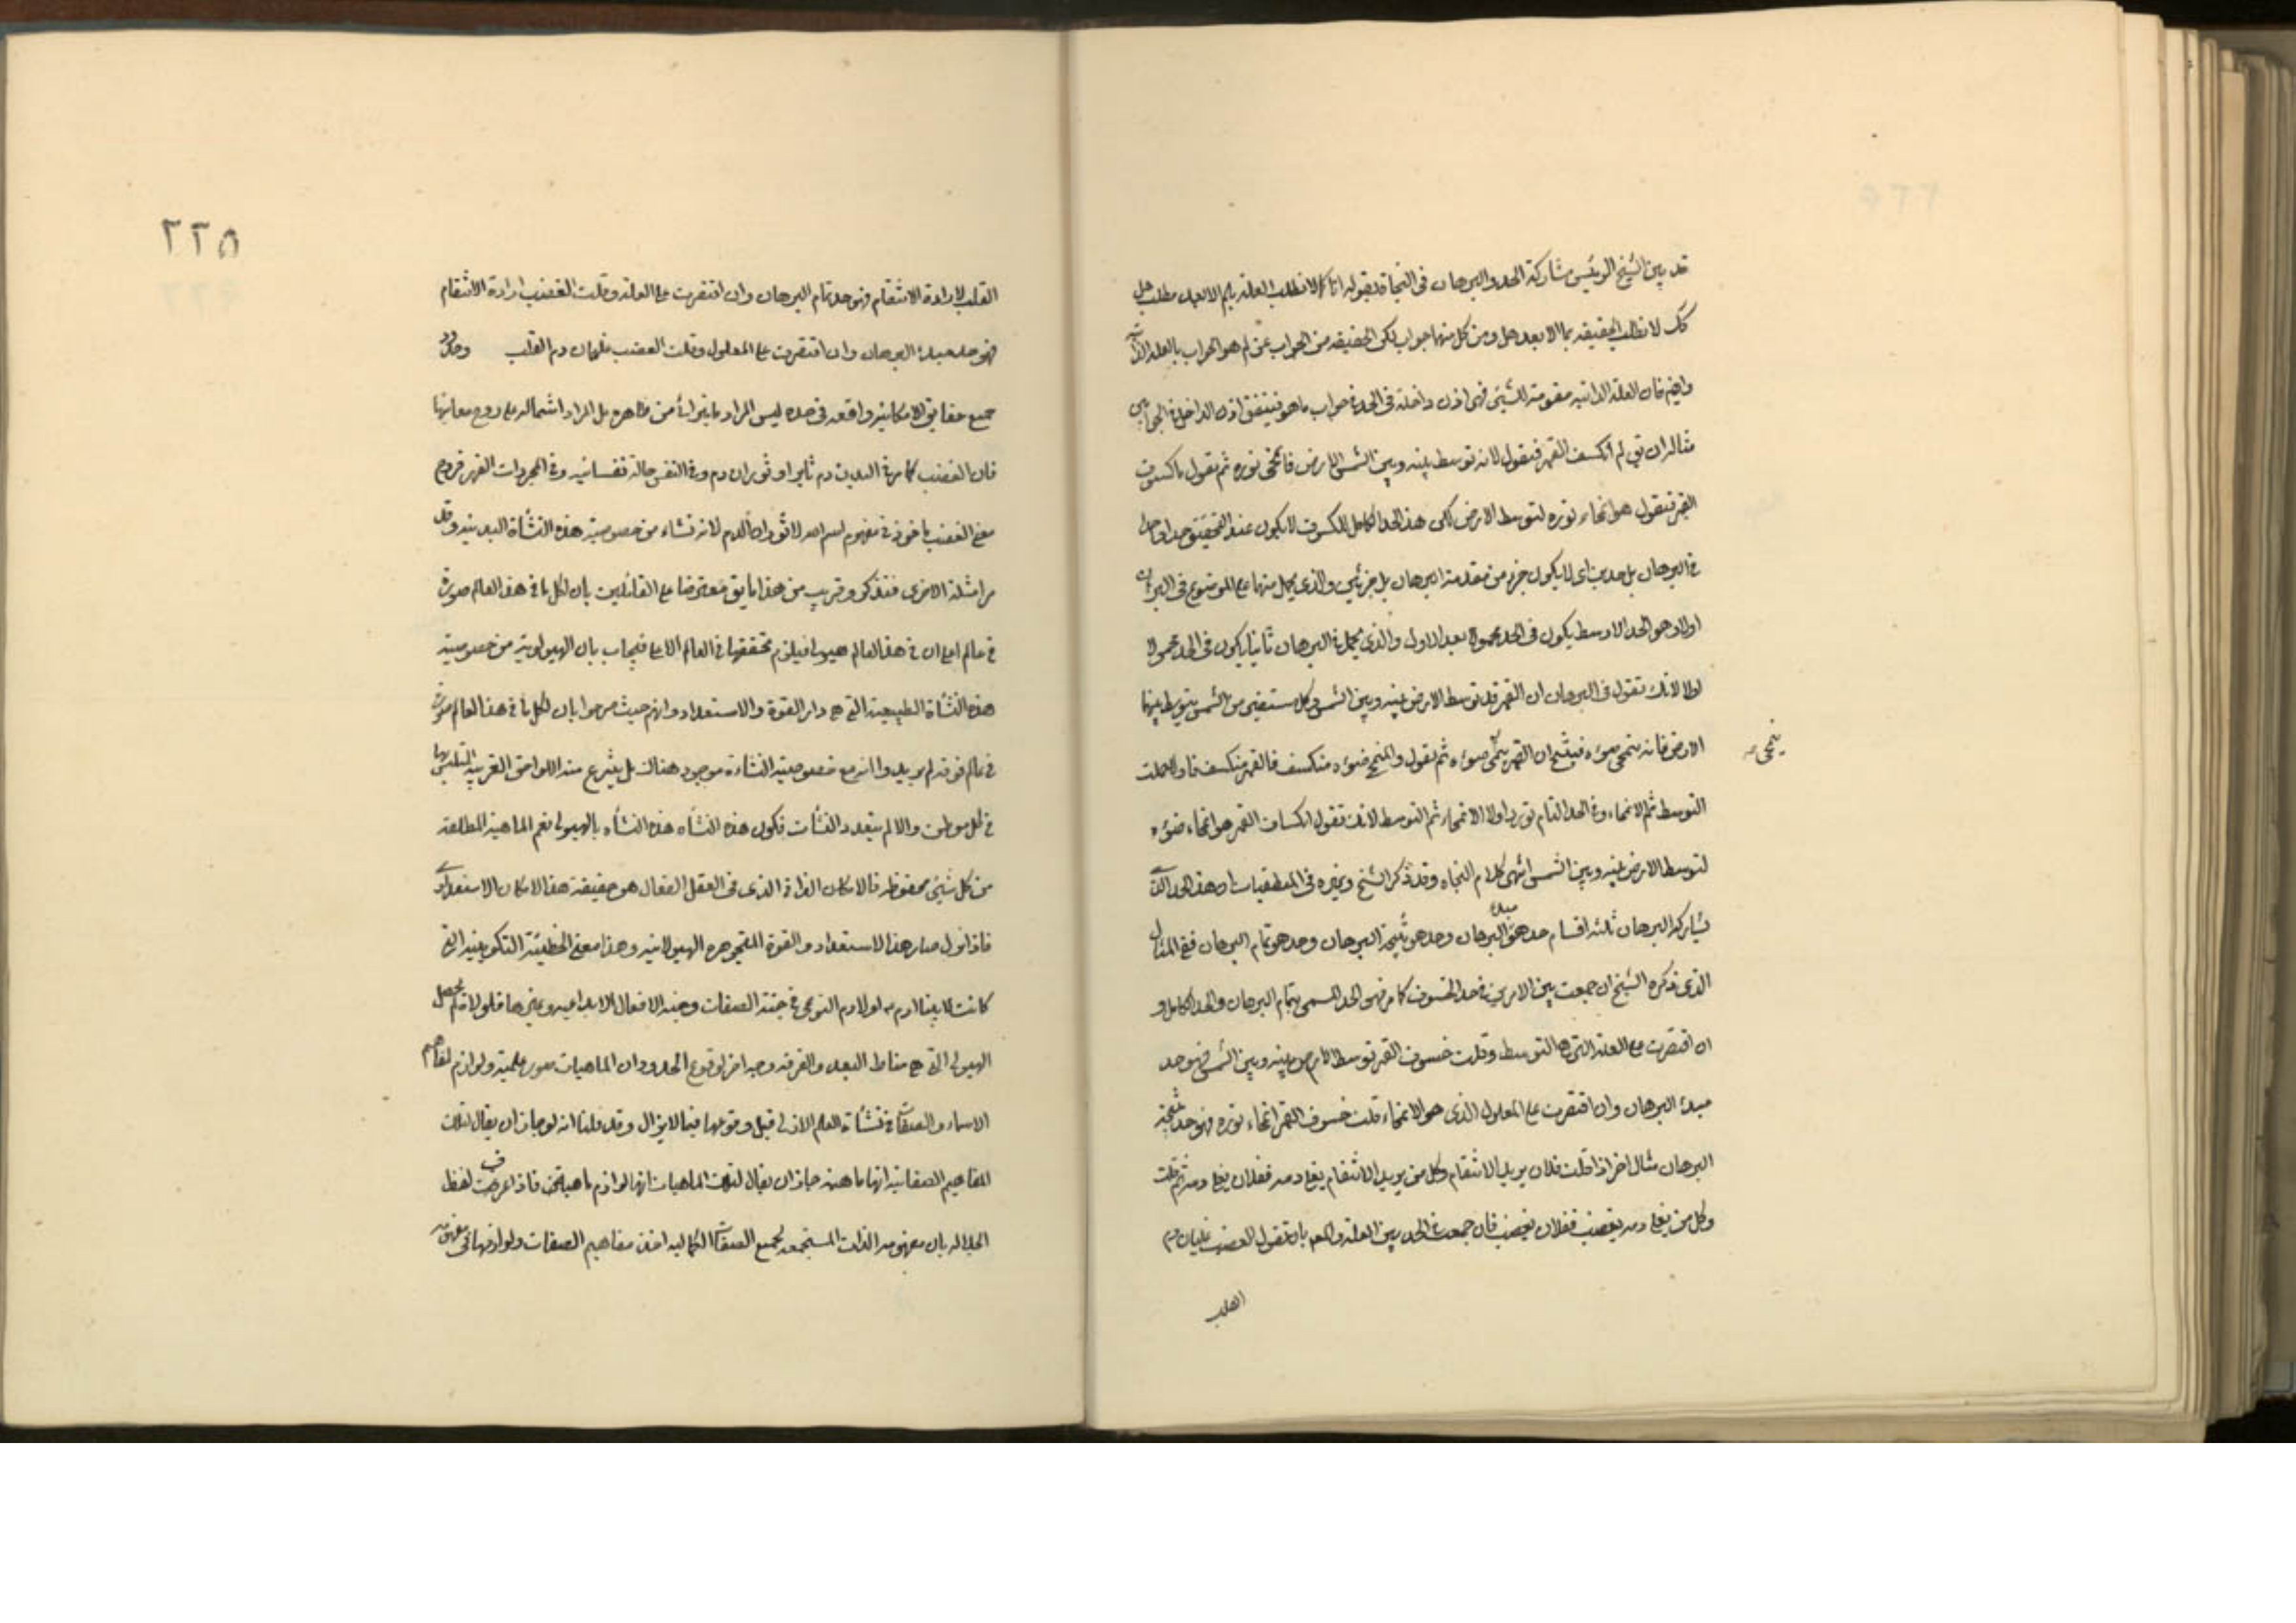 قد بين الشيخ الرئيس مشاركة الحد والبرهان فى النجاة بقوله انا كما لا نطلب العلة بلم الا بعد مطلب هل
كك لا نطلب الحقيقه بما الا بعد هل ومن كل منهما جواب لكن الحقيقه من الجواب عن لم هو الجواب بالعلة الذاتية
وايضا فان العلة الذاتيه مقومة للشيئ فهى اذن داخلة فى الحد فى جواب ما هو فيتفق اذن الداخل فى الجوابين
مثاله ان يق لم انكسف القمر فنقول لانه توسط بينه وبين الشمس الارض فانمحى نوره ثم نقول ما كسوف
القمر فنقول هو انمحاء نوره لتوسط الارض لكن هذا الحد الكامل للكسوف لا يكون عند التحقيق حدا واحدا
فى البرهان بل حدين اى لا يكون جزء من مقدمة البرهان بل جزئين والذى يحمل منهما على الموضوع فى البرهان
اولا وهو الحد الاوسط يكون فى الحد محمولا بعد الاول والذى يحمل فى البرهان ثانيا يكون فى الحد محمولا
اولا لانك تقول فى البرهان ان القمر قد توسط الارض بينه وبين الشمس وكل مستضيئ من الشمس يتوسط بينهما
الارض فانه ينمحى ضوءه فينتج ان القمر ينمحى ضوءه ثم نقول والمنمحى ضوءه منكسف فالقمر منكسف فاولا حملت
ينمحى
التوسط ثم الانمحاء وفى الحد التام تورد اولا الانمحاء ثم التوسط لانك تقول انكساف القمر هو انمحاء ضوءه
لتوسط الارض بينه وبين الشمس انتهى كلام النجاه وقد ذكر الشيخ وغيره فى المنطقيات ان هذا الحد الذى
يشارك البرهان ثلثه اقسام حد هو مبدء البرهان وحد هو نتيجة البرهان وحد هو تمام البرهان ففى المثال
الذى ذكره الشيخ ان جمعت بين الامرين فى حد الخسوف كما مر فهو الحد المسمى بتمام البرهان والحد الكامل و
ان اقتصرت على العلة التى هى التوسط وقلت خسوف القمر توسط الارض بينه وبين الشمس فهو حد
مبدء البرهان وان اقتصرت على المعلول الذى هو الانمحاء قلت خسوف القمر انمحاء نوره فهو حد نتيجة
البرهان مثال اخر اذا قلت فلان يريد الانتقام وكل من يريد الانتقام يغلى دمه ففلان يغلى دمه ثم قلت
وكل من يغلى دمه يغضب ففلان يغضب فان جمعت فى الحد بين العلة والمعلول بان تقول الغضب غليان دم
القلب
٢٢٥
القلب لارادة الانتقام فهو حد تمام البرهان وان اقتصرت على العلة وقلت الغضب ارادة الانتقام
فهو حد مبدء البرهان وان اقتصرت على المعلول وقلت الغضب غليان دم القلب وحدود
جميع حقايق الامكانية واقعه فى حده ليس المراد ما يترااى من ظاهره بل المراد اشتماله على روح معانيها
فان الغضب كما مر فى البدن دم ثاير او ثوران دم وفى النفس حالة نفسانيه وفى المجردات القهر فروح
معنى الغضب ماخوذ فى مفهوم اسم الله لا ثوران الدم لانه نشاء من خصوصية هذه النشأة البدنيه وقد
مر امثلة الاخرى فتذكر وقريب من هذا ما يق معترضا على القائلين بان لكل ما فى هذا العالم صورة
فى عالم اعلى ان فى هذا العالم هيولى فيلزم تحققها فى العالم الاعلى فيجاب بان الهيولوية من خصوصية
هذه النشأة الطبيعية التى هى دار القوة والاستعداد وانهم حيث صرحوا بان لكل ما فى هذا العالم صورة
فى عالم فوقه لم يريدوا انه مع خصوصية النشاءة موجود هناك بل ينزع منه اللواحق الغريبه
فى كل موطن والا لم يتعدد النشأت فكون هذه النشأه هذه النشأه بالهيولى نعم الماهية المطلقة
من كل شيئ محفوظه فالامكان الذاتى الذى فى العقل الفعال هو حقيقة هذا الامكان الاستعدادى
فاذا نزل صار هذا الاستعداد والقوة المتجوهره الهيولانيه وهذا معنى الخطيئة التكوينيه التى
كانت لابينا ادم بل لوالادم النوعى فى جنة الصفات وجنه الافعال الابداعيه وغيرها فلولاه لم تحصل
الهيولى التى هى مناط البعد والفرقه وجه اخر لوقوع الحدود ان الماهيات صور علمية ولوازم لمفاهيم
الاسماء والصفات فى نشأة العلم الازلى قبل وقوعها فيما لايزال وقد قلنا انه لو جاز ان يقال لتلك
المفاهيم الصفاتيه انها ماهية جاز ان يقال لتلك الماهيات انها لوازم ماهية فاذا عرفت لفظ
الجلاله بان مفهومه الذات المستجمعه لجميع الصفات الكماليه اخذت مفاهيم الصفات ولوازمها فى مفهومه